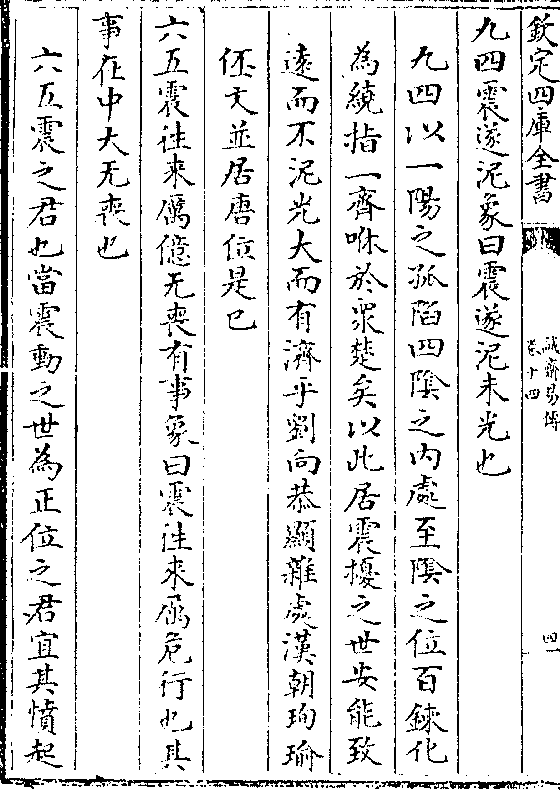 欽定四庫全書
誠齋易傳
卷十四
四
九四震遂泥象曰震遂泥未光也
九四以一陽之孤陷四陰之内處至陰之位百鍊化
為繞指一齊咻於衆楚矣以此居震擾之世安能致
遠而不泥光大而有濟乎劉向恭顯雜處漢朝珣瑜
伾文並居唐位是已
六五震往來厲億无喪有事象曰震往來厲危行也其
事在中大无喪也
六五震之君也當震動之世為正位之君宜其憤起